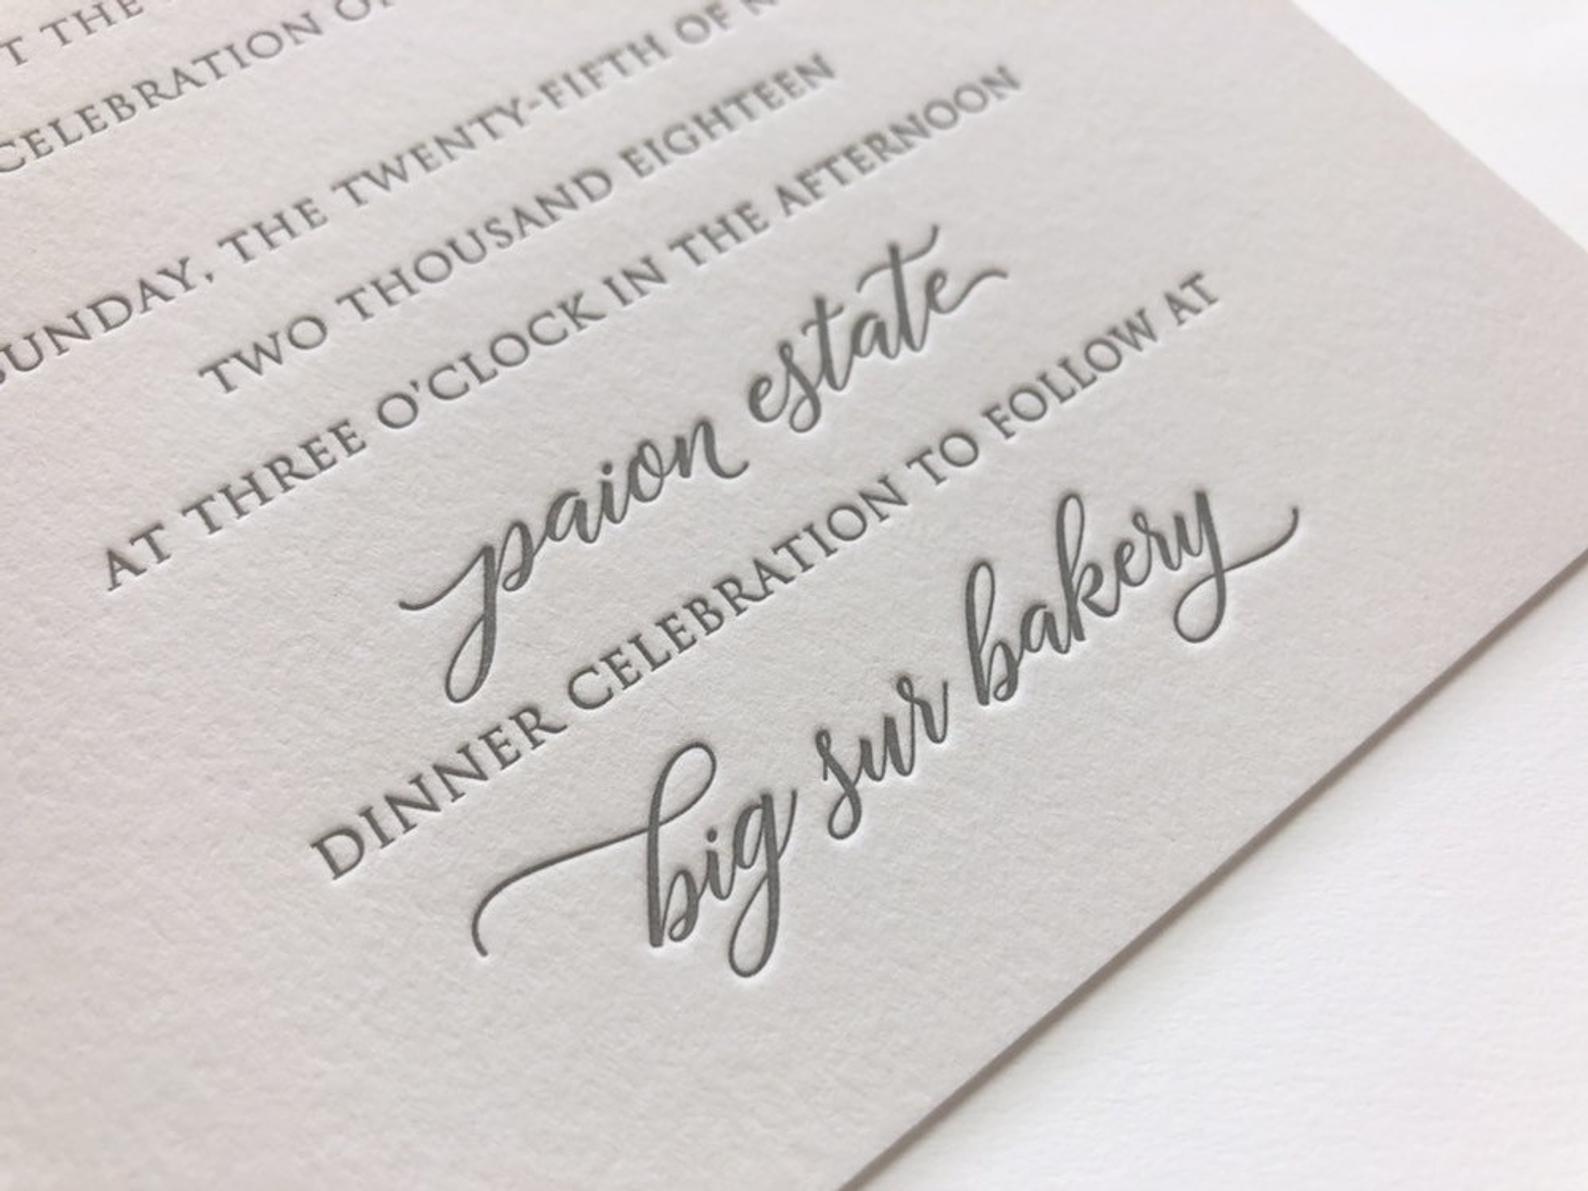 T THE
CELEBRATION OF
SUNDAY, THE TWENTY-FIFTH OF
TWO THOUSAND EIGHTEEN
AT THREE O'CLOCK IN THE AFTERNOON
paion estate
DINNER CELEBRATION TO FOLLOW AT
big sur bakery